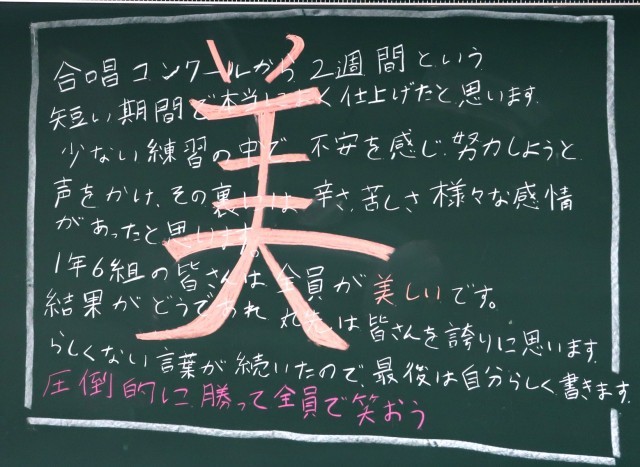 美
合唱コンクールから2週間という
短い期間で本当によく仕上げたと思います。
少ない練習の中で、不安を感じ、努力しようと
声をかけ、その裏には、辛さ、苦しさ、様々な感情
があったと思います。
1年6組の皆さんは全員が美しいです。
結果がどうであれ は皆さんを誇りに思います。
らしくない言葉が続いたので、最後は自分らしく書きます。
圧倒的に勝って全員で笑おう